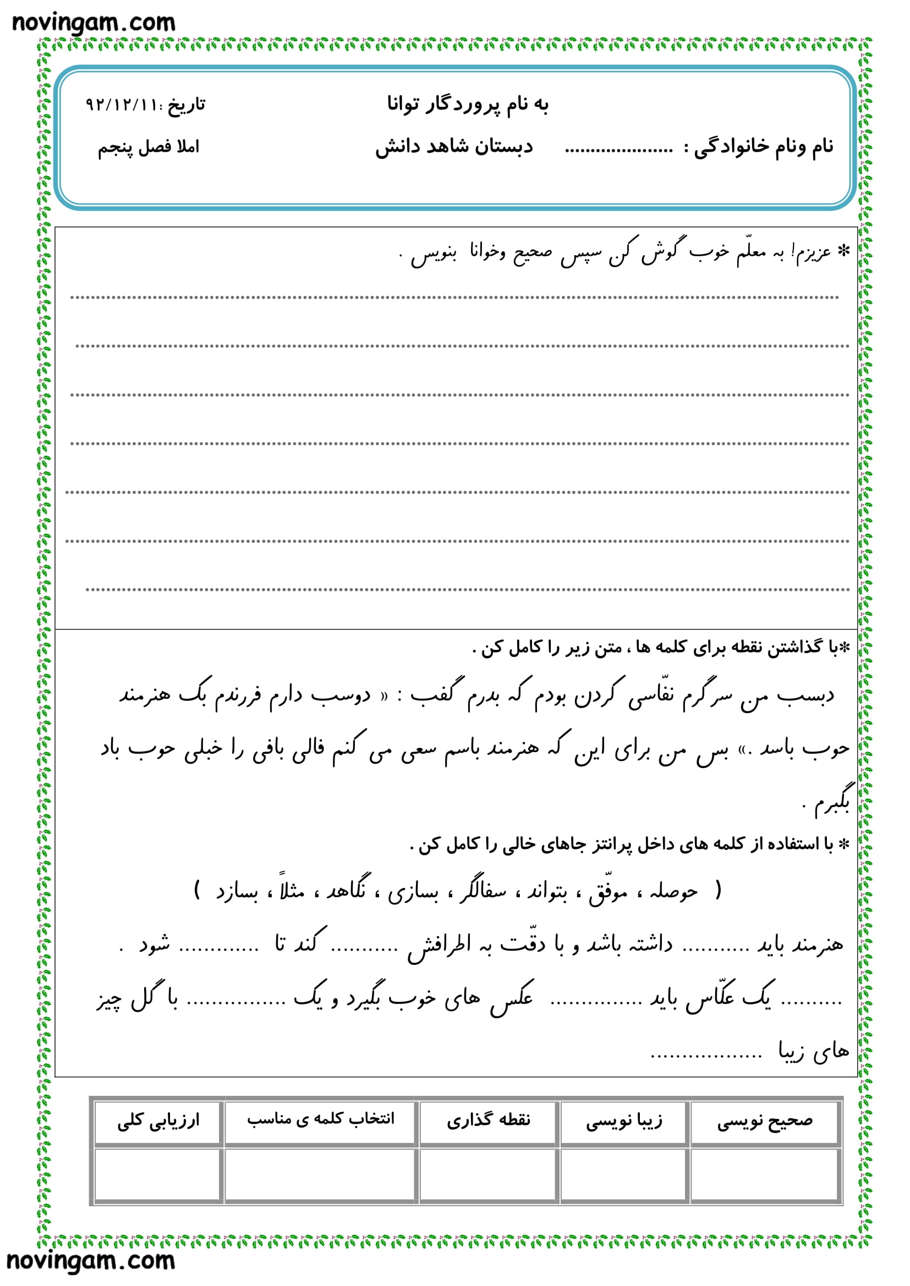 novingam.com
به نام پروردگار توانا تاریخ :۹۲/۱۲/۱۱
نام ونام خانوادگی : ..................... دبستان شاهد دانش املا فصل پنجم
* عزیزم! به معلّم خوب گوش کن سپس صحیح وخوانا بنویس .
*با گذاشتن نقطه برای کلمه ها ، متن زیر را کامل کن .
دبسب من سرگرم نفّاسی کردن بودم که بدرم گفب : « دوسب دارم فررندم بک هنرمند
حوب باسد .» بس من برای این که هنرمند باسم سعی می کنم فالی بافی را خبلی حوب باد
بگبرم .
* با استفاده از کلمه های داخل پرانتز جاهای خالی را کامل کن .
( حوصله ، موفّق ، بتواند ، سفالگر ، بسازی ، نگاهد ، مثلاً ، بسازد )
هنرمند باید ........... داشته باشد و با دقّت به اطرافش ........... کند تا ............. شود .
.......... یک عکّاس باید ............... عکس های خوب بگیرد و یک ................ با گل چیز
های زیبا ..................
صحیح نویسی زیبا نویسی نقطه گذاری انتخاب کلمه ی مناسب ارزیابی کلی
novingam.com